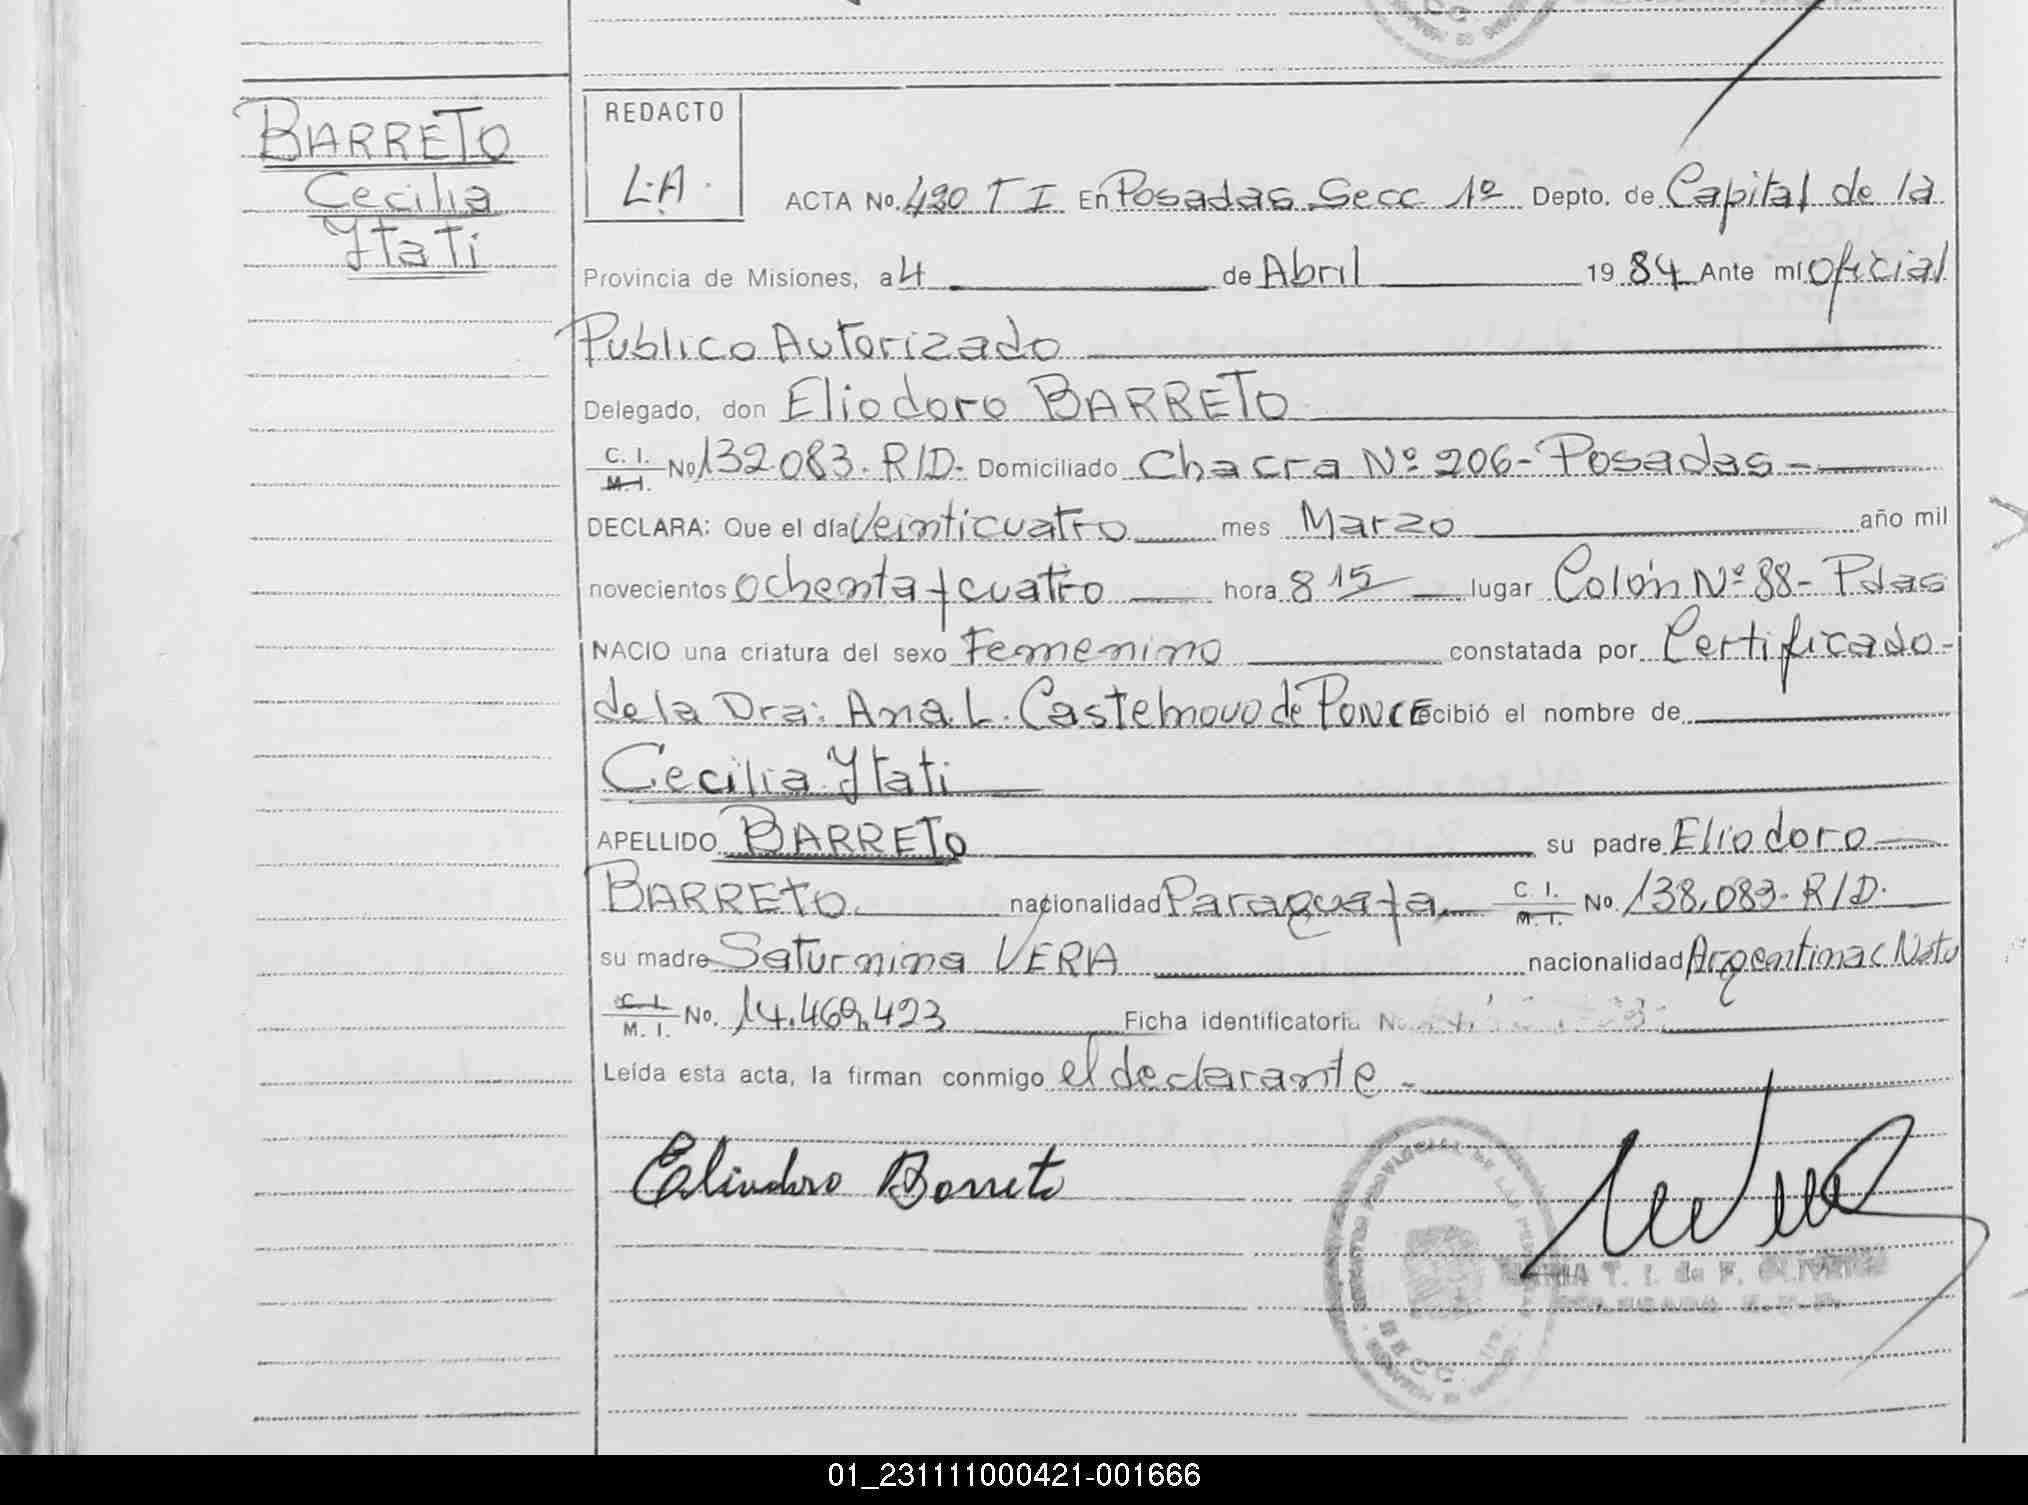 BARRETO
Cecilia
Ytati
REDACTO
L.A.
ACTA No. 490 T I En Posadas Secc 1º Depto. de Capital de la
Provincia de Misiones, a 4 de Abril 1984 Ante mí oficial
Publico Autorizado
Delegado, don Eliodoro BARRETO
C. I.
M. I. No 132.083. R/D. Domiciliado Chacra Nº 206 - Posadas -
DECLARA: Que el día Veinticuatro mes Marzo año mil
novecientos ochenta y cuatro hora 8 15 lugar Colón Nº 88 - Pdas
NACIO una criatura del sexo Femenino constatada por Certificado -
de la Dra: Ana L. Castelnovo de PONCE ecibió el nombre de
Cecilia Ytati
APELLIDO BARRETO su padre Eliodoro
BARRETO nacionalidad Paraguaya C. I.
M. I. No. 138,083. R/D.
su madre Saturnina VERA nacionalidad Argentina c Natu
C. I.
M. I. No. 14.469.423 Ficha identificatoria N
Leída esta acta, la firman conmigo el declarante -
Eliodoro Barreto
MARIA T. I. de F. OLIVEIRA
SECC.
01_231111000421-001666